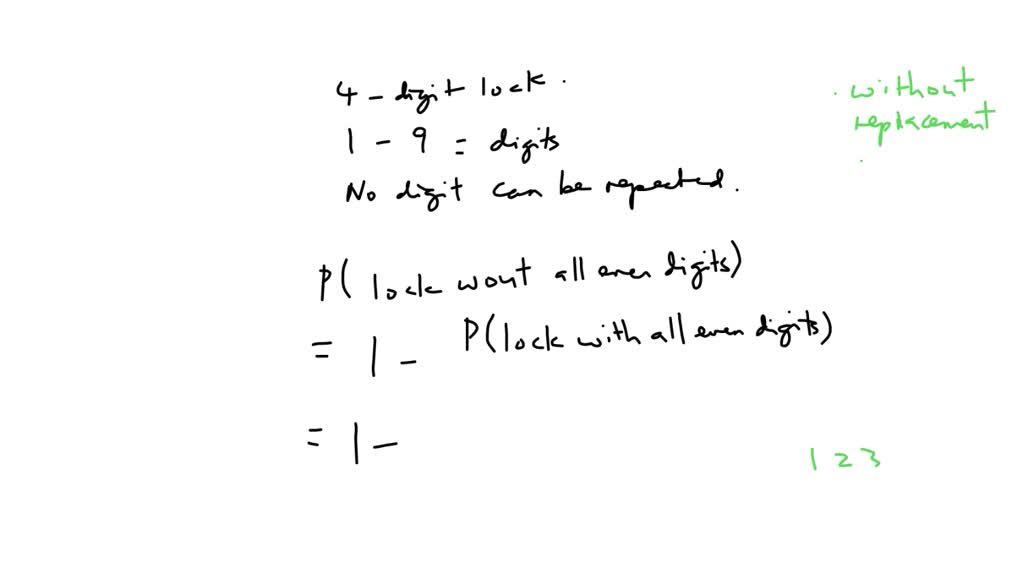 4 - digit lock.
1 - 9 = digits
No digit can be repeated.
. without
replacement
P( lock wout all even digits)
= 1 - P(lock with all even digits)
= 1 -
1 2 3